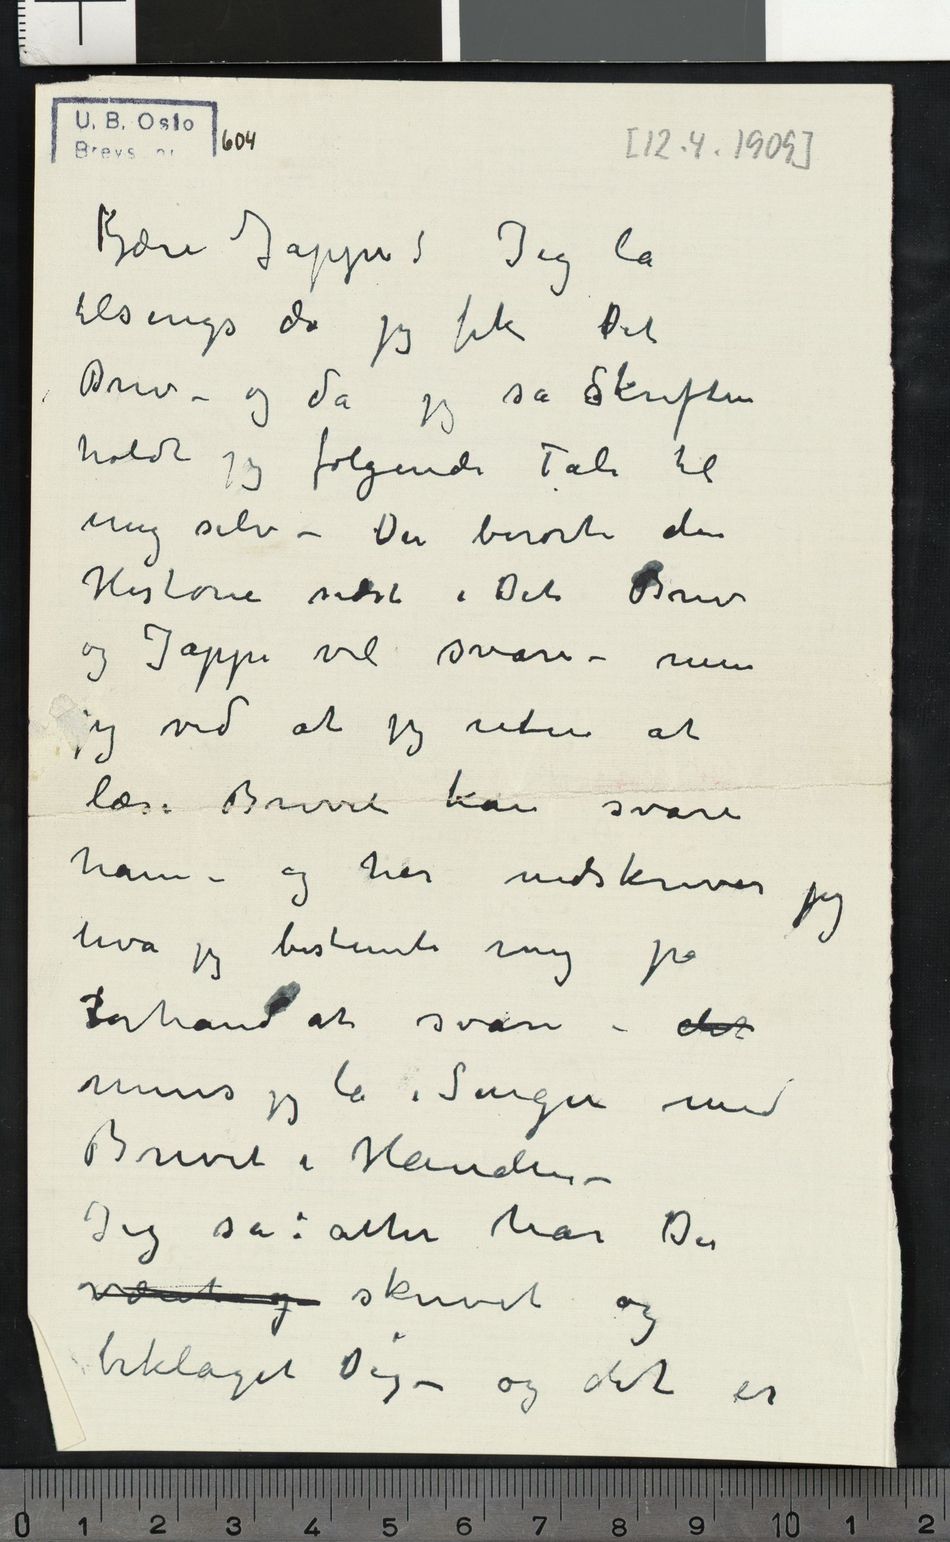 U. B. Oslo
Brevs. nr.
604
[12.4.1909]
Kjære Jappe! Jeg la
tilsengs da jeg fik Dit
Brev – og da jeg sa Skriften
holdt jeg følgende Tale til
mig selv – Du berørte den
Historie sidst i Dit Brev
og Jappe vil svare – men
jeg ved at jeg uten at
læse Brevet kan svare
ham – og her nedskriver jeg
hva jeg bestemte mig på
Forhand at svare – det
mens jeg la i Sengen med
Brevet i Handen –
Jeg sa: atter har Du
været og skrevet og
beklaget Dig – og det er
0 1 2 3 4 5 6 7 8 9 10 1 2